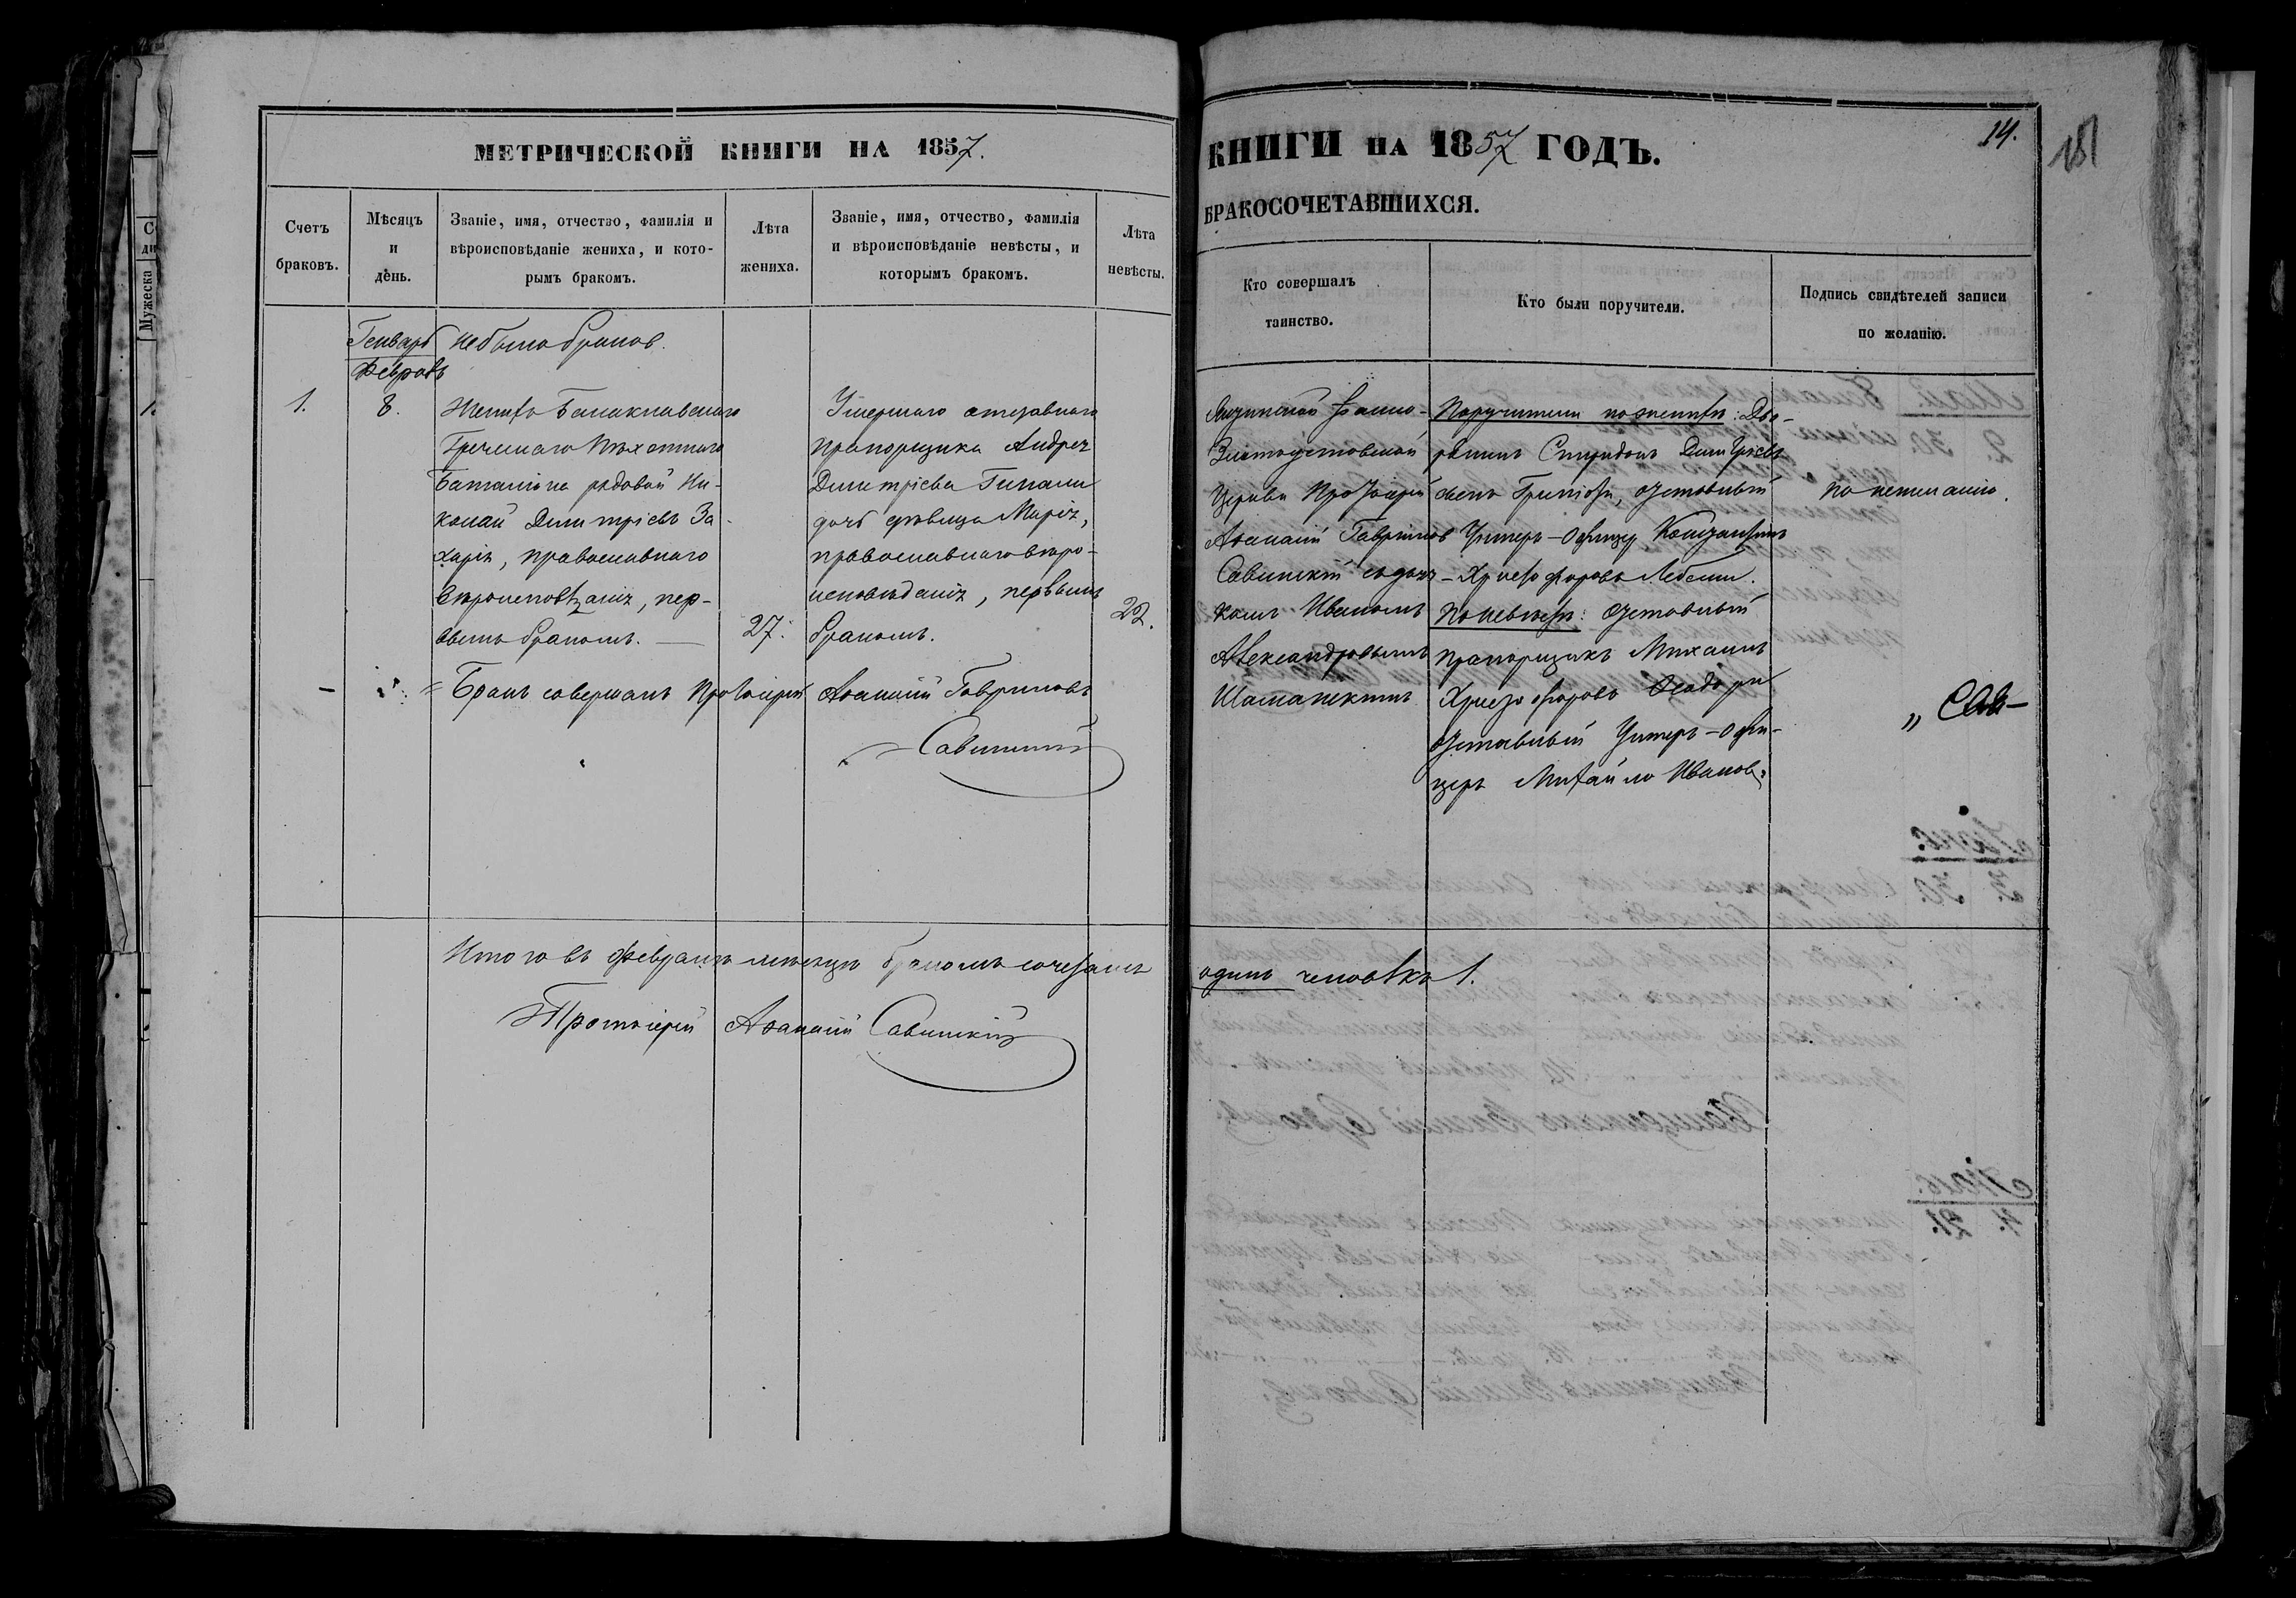 МЕТРИЧЕСКОЙ КНИГИ НА 1857.
Счетъ браковъ.
Мѣсяцъ и день.
Званіе, имя, отчество, фамилія и вѣроисповѣданіе жениха, и которымъ бракомъ.
Лѣта жениха.
Званіе, имя, отчество, фамилія и вѣроисповѣданіе невѣсты, и которымъ бракомъ.
Лѣта невѣсты.
Генварь небыло браков.
Февраль
1.
8.
Женихъ Балаклавскаго
Греческаго Пѣхотнаго
Баталіона рядовой Ни-
колай Димитріевъ За-
харія, православнаго
вѣроисповѣданія, пер-
вымъ бракомъ. —
27.
Умершаго отставнаго
прапорщика Андрея
Димитріева Гипали
дочь дѣвица Марія,
православнаго вѣро-
исповѣданія, первымъ
бракомъ.
22.
Бракъ совершалъ Протоіерей Аѳанасій Гавриловъ
Савинскій
Итого въ Февралѣ месяцѣ бракомъ сочетанъ
Протоіерей Аѳанасій Савинскій
КНИГИ НА 1857 ГОДЪ.
14.
181
БРАКОСОЧЕТАВШИХСЯ.
Кто совершалъ таинство.
Кто были поручители.
Подпись свидѣтелей записи по желанію.
Іоанно-
Златоустовской
Церкви Протоіерей
Аѳанасій Гавриловъ
Савинскій съ дьяч-
комъ Иваномъ
Александровымъ
Поручители по женихѣ: Дво-
рянинъ Спиридонъ Димитріевъ
отставный
Унтеръ-Офицеръ Константинъ
Христофоровъ
По невѣстѣ: отставный
прапорщикъ Михаилъ
Христофоровъ
отставный Унтеръ-офи-
церъ Михайло Ивановъ
По нежеланію.
„ Сав-
одинъ человѣкъ 1.